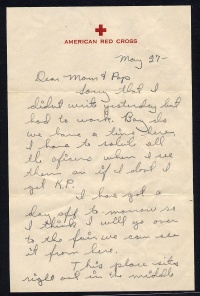 AMERICAN RED CROSS
May 27-
Dear Mom & Pop
Sorry that I
didnt write yesterday but
had to work. Boy do
we have a time here,
I have to salute all
the oficers when I see
them or if I dont I
get K.P.
I have got a
day off to morrow so
I think I will go over
to the fair we can see
it from here.
This place sits
right out in the middle